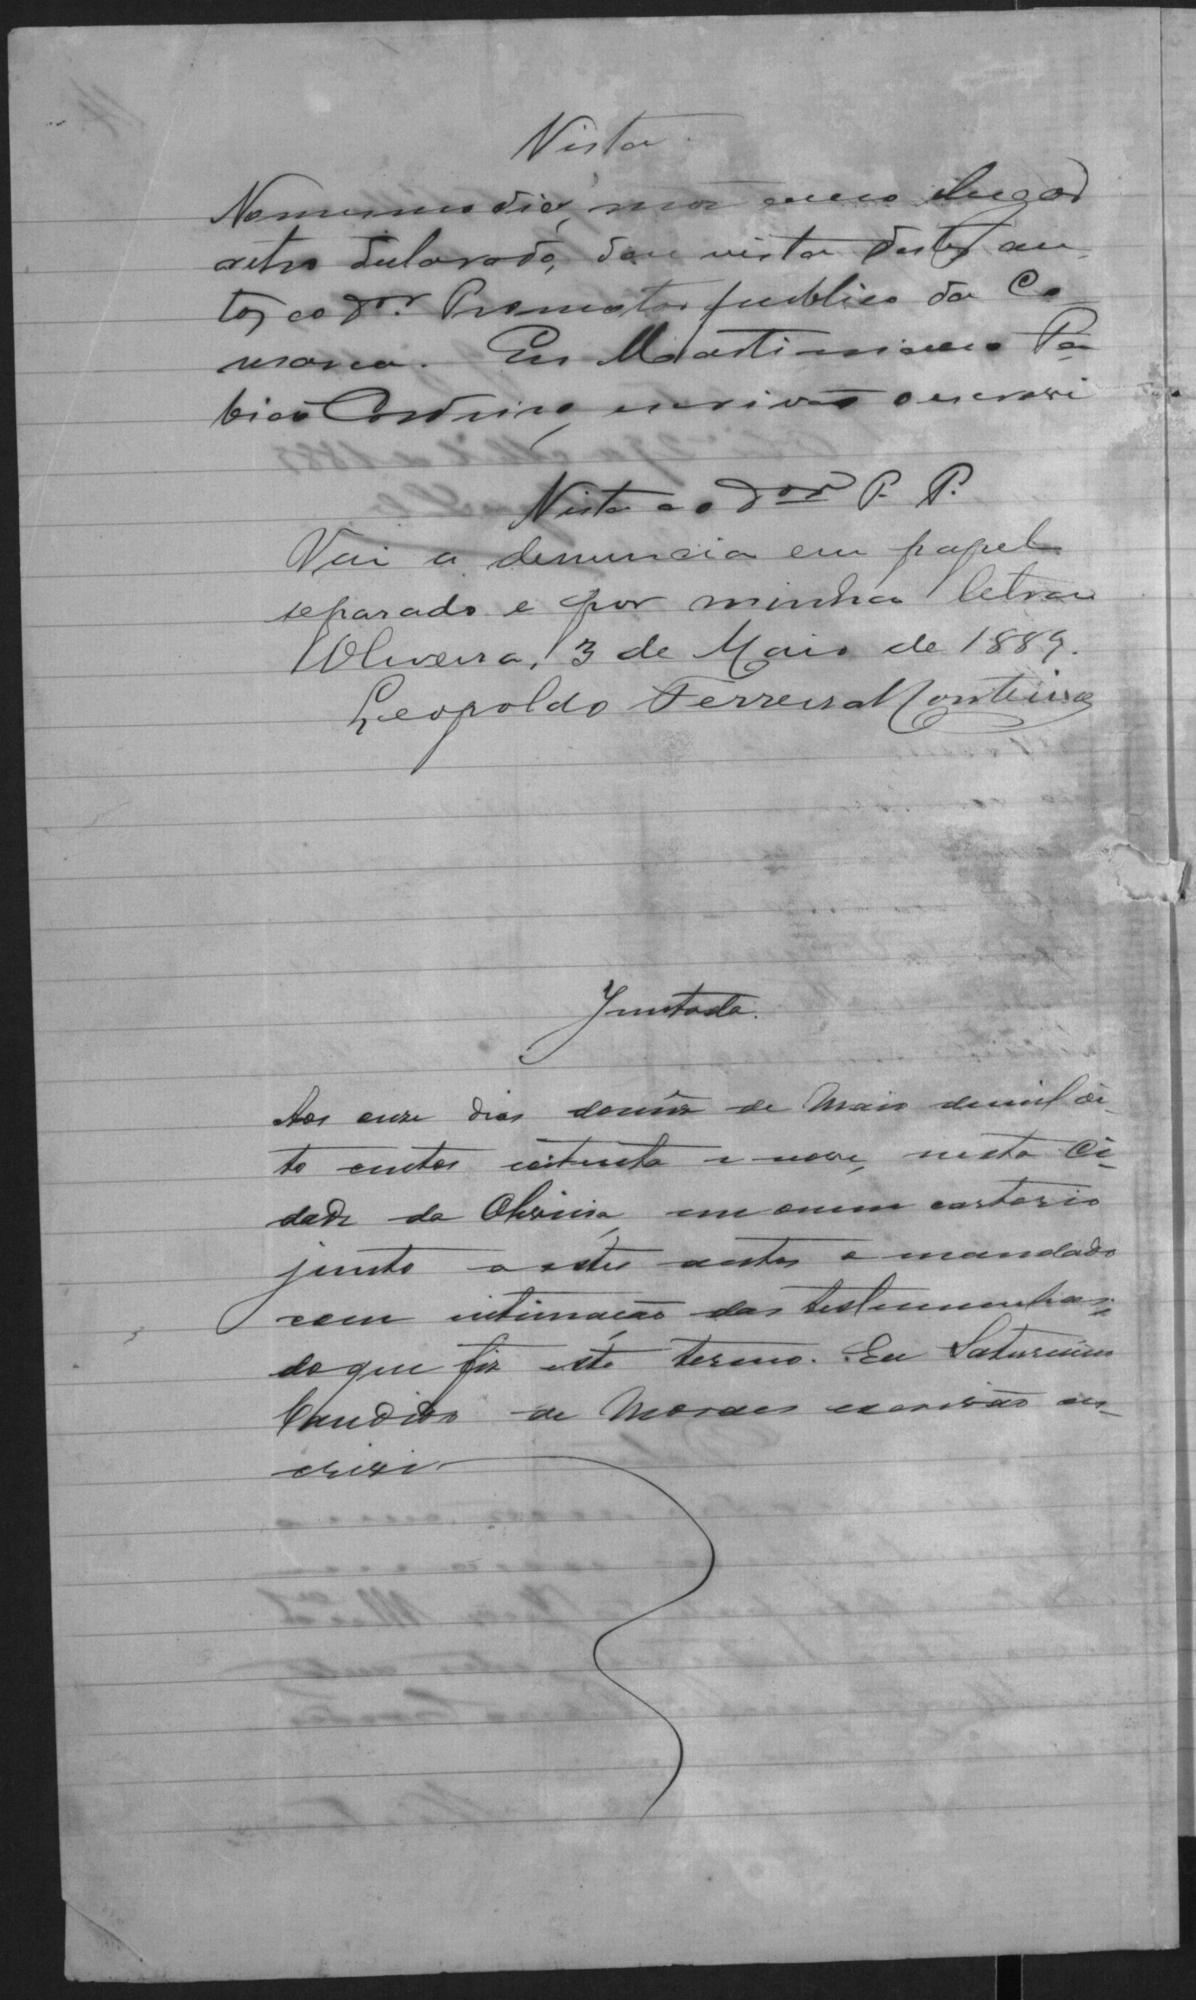 Vista
No mesmo dia, mez anno e lugar
retro declarado, dou vista destes au
tos ao Dor. Promotor publico da Co
marca. Eu Martiniano
escrivão o escrevi
Vista ao Dor P. P.
Vai a denuncia em papel
separado e por minha letra
Oliveira, 3 de Maio de 1889.
Leopoldo Ferreira Monteiro
Juntada.
Aos onze dias do mez de Maio de mil oi-
to centos oitenta e nove, nesta Ci-
dade da Oliveira em o meu cartorio
junto a estes autos o mandado
com intimação das testemunhas;
do que fiz este termo. Eu Saturnino
Candido de Moraes escrivão es-
crevi